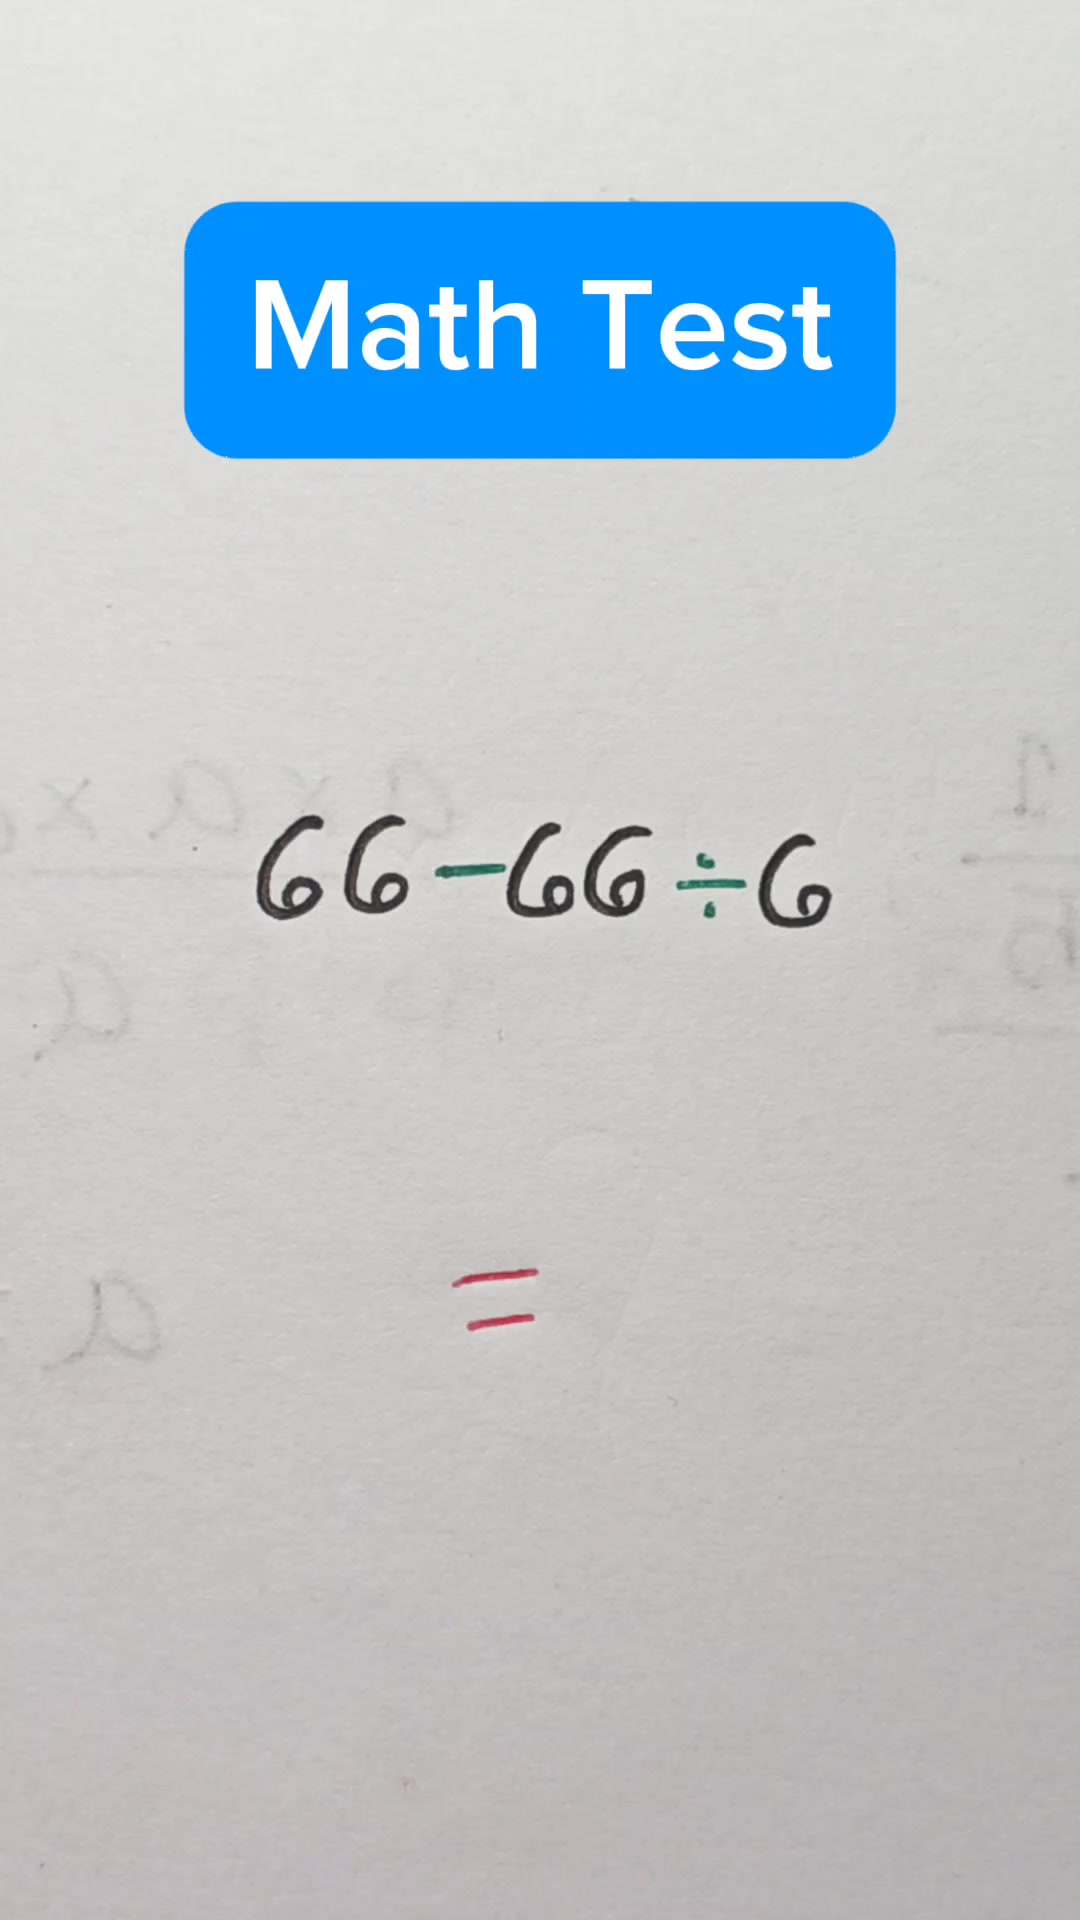 Math Test
66-66÷6
=